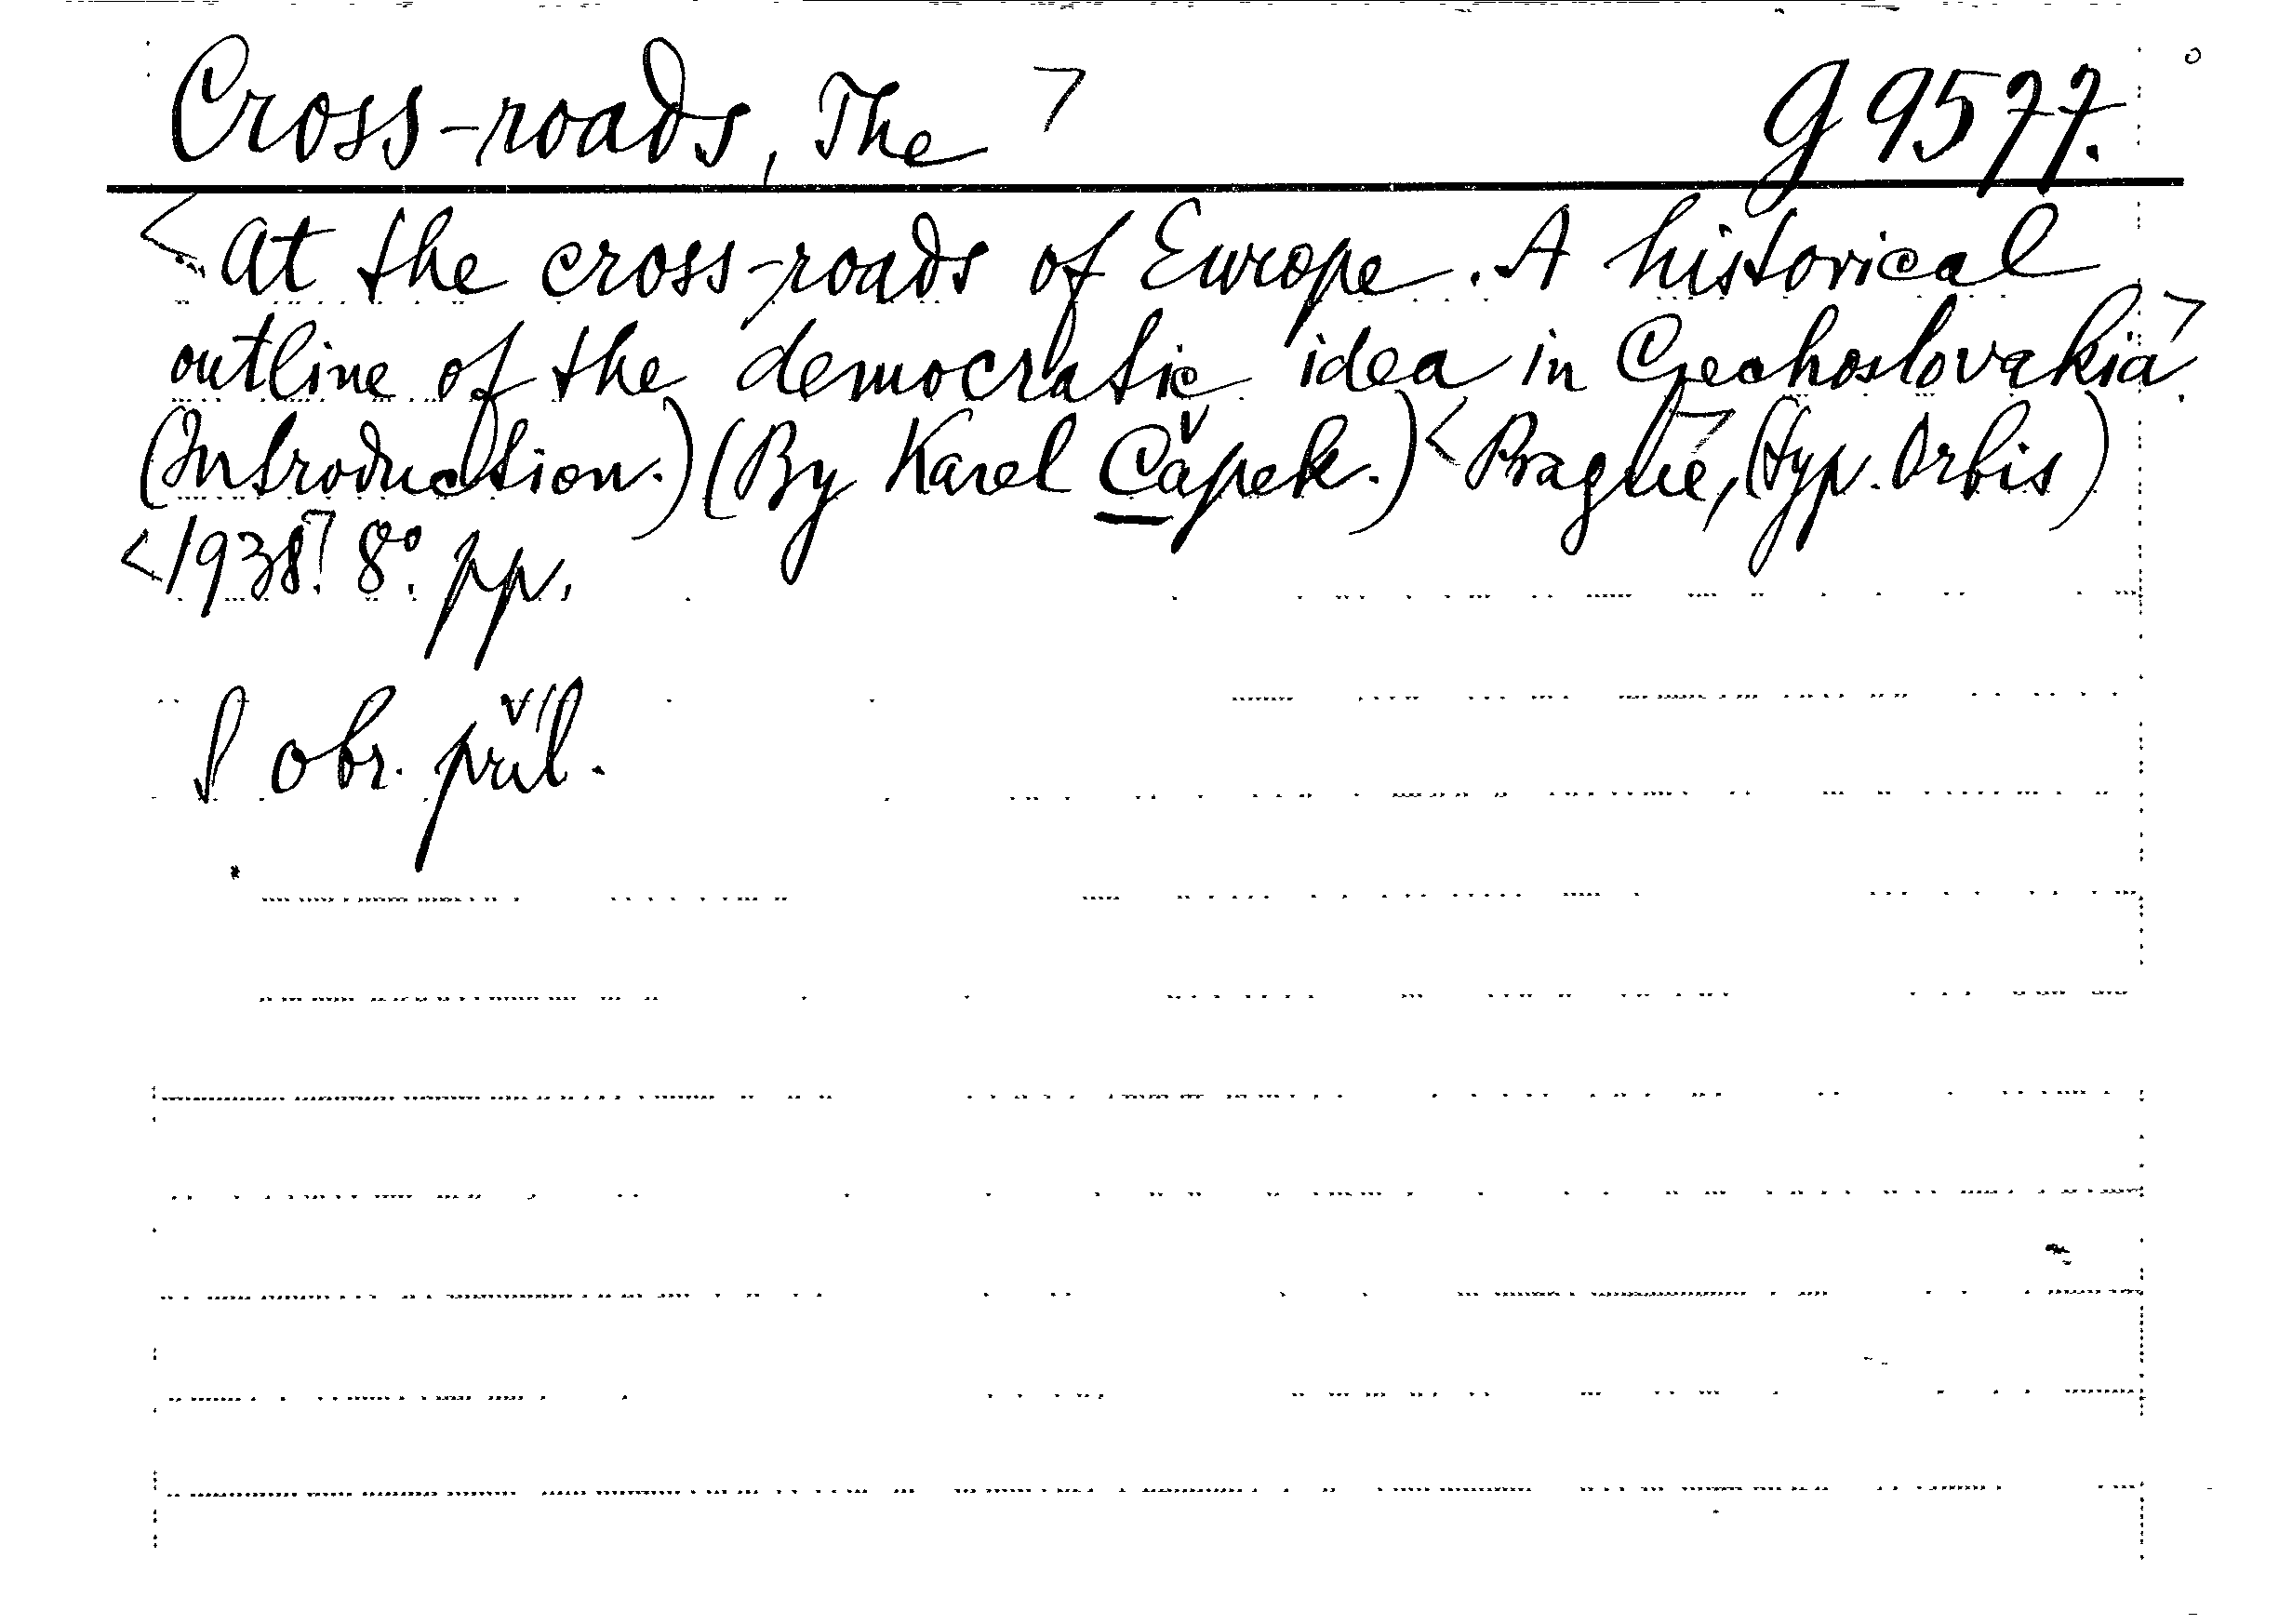 Cross-roads, The ¬ G 9577.
<At the cross-roads of Europe. A historical
outline of the democratic idea in Czechoslovakia¬.
(Introduction.) (By Karel Čapek.) <Prague¬, (typ. Orbis)
<1938¬. 8°. pp.
S obr. příl.